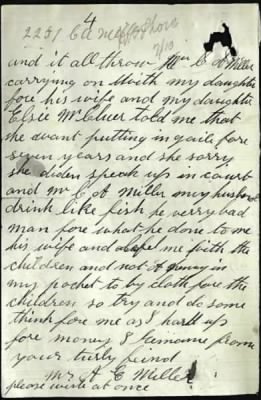 4
2251 Ed
and it all throw Mr C A Miller
carrying on with my daughter
fore his wife and my daughter
Elsie McCluer told me that
she want putting in gaile fore
seven years and she sorry
she diden speak up in court
and mr C A Miller my husband
drink like fish he very bad
man fore what he done to me
his wife and me with the
children and not A penny in
my pocket to by cloth fore the
children so try and do some
think fore me as I hard up
fore money I remaine frome
your turly frind
Mrs A C Miller
please write at once